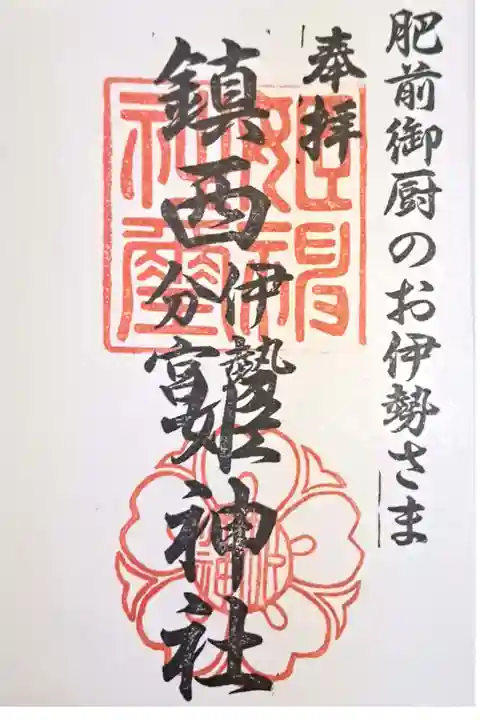 肥前御厨のお伊勢さま
奉拝
鎮西
伊勢
分宮
姫神社